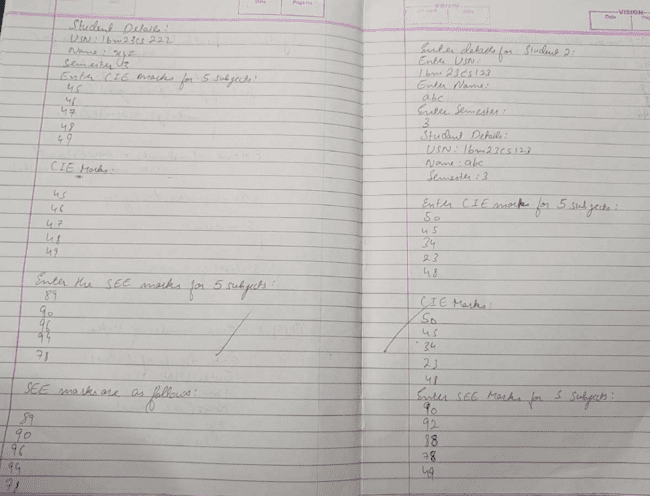 Student Details:
USN: 1bm23cs222
Name: xyz
Semester: 3
Enter CIE marks for 5 subjects:
45
46
47
48
49
CIE Marks:
45
46
47
48
49
Enter the SEE marks for 5 subjects:
89
90
96
94
78
SEE marks are as follows:
89
90
96
94
78
VISION
Date
Enter details for Student 2:
Enter USN:
1bm23cs123
Enter Name:
abc
Enter Semester:
3
Student Details:
USN: 1bm23cs123
Name: abc
Semester: 3
Enter CIE marks for 5 subjects:
50
45
34
23
48
CIE Marks:
50
45
34
23
48
Enter SEE Marks for 5 subjects:
90
92
88
78
49